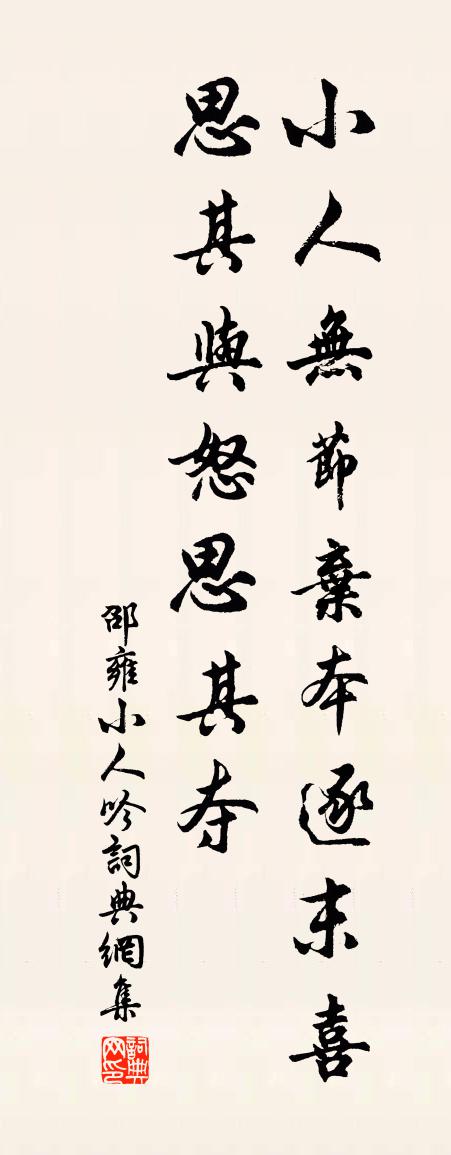 小人無節棄本逐末喜
思其與怒思其夺
邵雍小人吟詞典網集
詞典网印